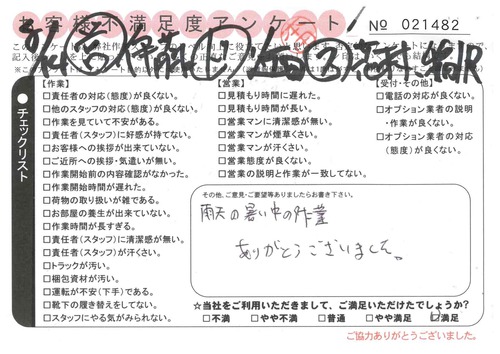 お客様不満足度アンケート
No 021482
チェックリスト
【作業】
□責任者の対応(態度)が良くない。
□他のスタッフの対応(態度)が良くない。
□作業を見ていて不安がある。
□責任者(スタッフ)に好感が持てない。
□お客様への挨拶が出来ていない。
□ご近所への挨拶・気遣いが無い。
□作業開始前の内容確認がなかった。
□作業開始時間が遅れた。
□荷物の取り扱いが雑である。
□お部屋の養生が出来ていない。
□作業時間が長すぎる。
□責任者(スタッフ)に清潔感が無い。
□責任者(スタッフ)が汗くさい。
□トラックが汚い。
□梱包資材が汚い。
□運転が不安(下手)である。
□靴下の履き替えをしてない。
□スタッフにやる気がみられない。
【営業】
□見積もり時間に遅れた。
□見積もり時間が長い。
□営業マンに清潔感が無い。
□営業マンが煙草くさい。
□営業マンが汗くさい。
□営業態度が良くない。
□営業の説明と作業が一致してない。
【受付・その他】
□電話の対応が良くない。
□オプション業者の説明
・作業が良くない。
□オプション業者の対応
(態度)が良くない。
その他、ご意見・ご要望等ありましたらお書き下さい。
雨天の暑い中の作業
ありがとうございました。
☆当社をご利用いただきまして、ご満足いただけたでしょうか?
□不満 □やや不満 □普通 □やや満足 ☑満足
ご協力ありがとうございました。